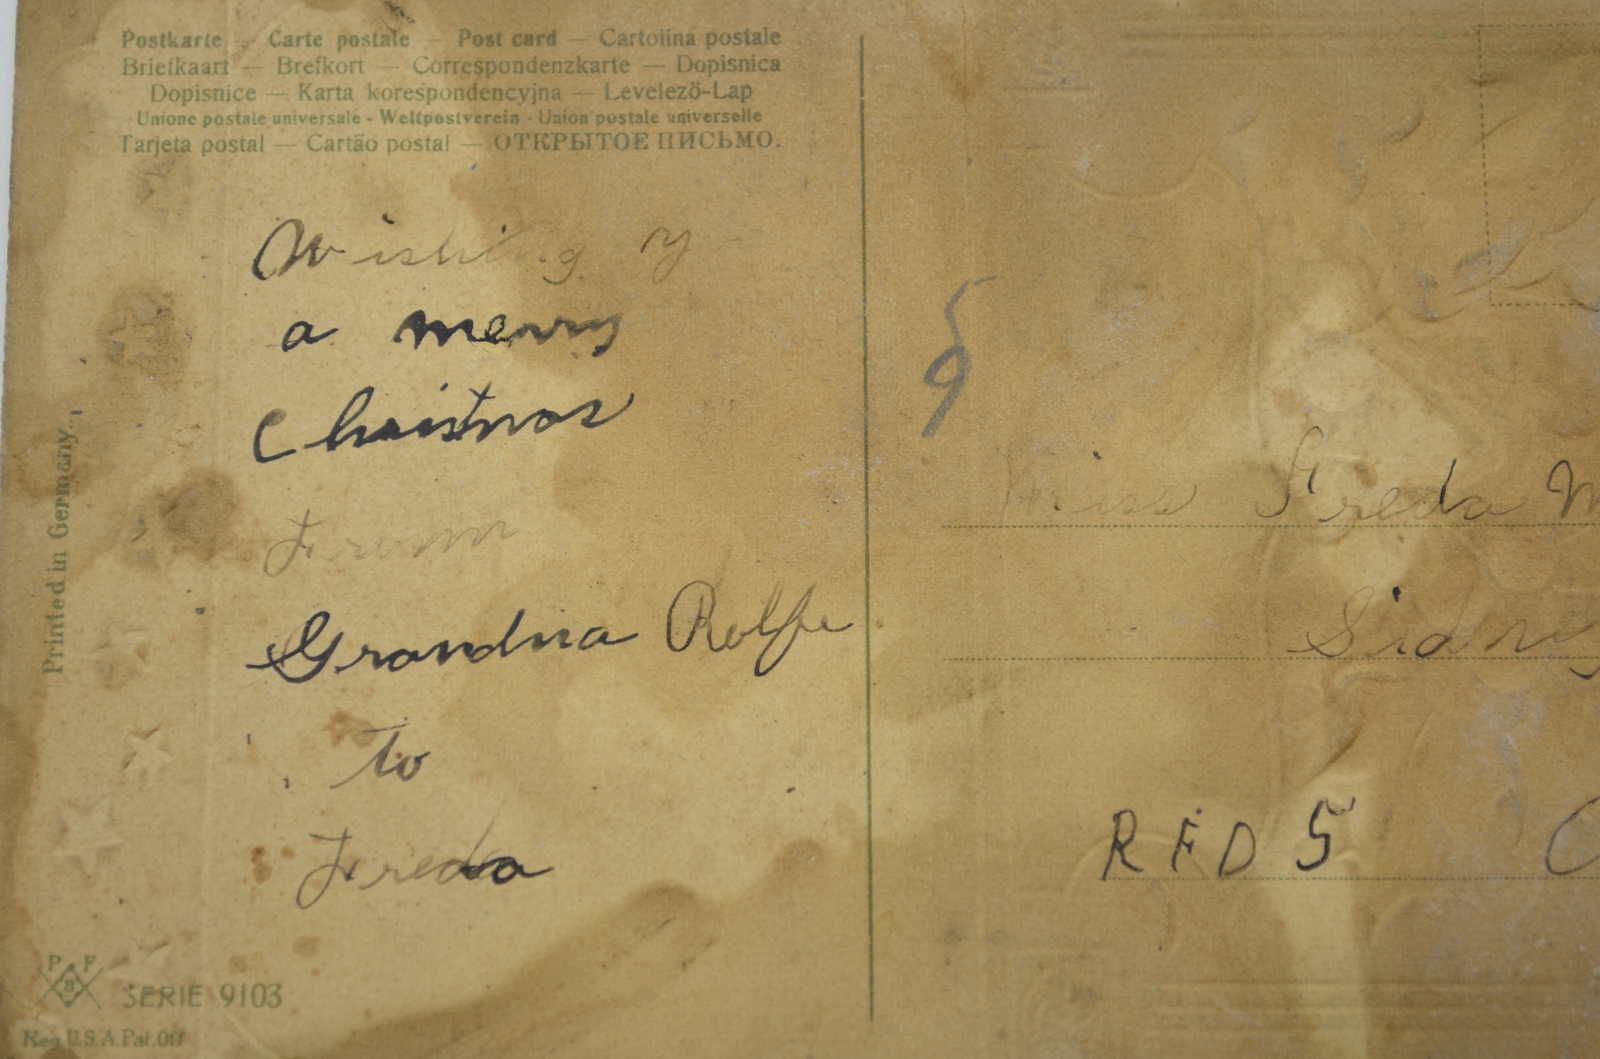 Postkarte — Carte postale — Post card — Cartolina postale
Briefkaart — Brefkort — Correspondenzkarte — Dopisnica
Dopisnice — Karta korespondencyjna — Levelező-Lap
Unione postale universale - Weltpostverein - Union postale universelle
Tarjeta postal — Cartão postal — ОТКРЫТОЕ ПИСЬМО.
Wishing y
a merry
Christmas
From
Grandma Rolfe
to
Freda
Printed in Germany.
P F
B
SERIE 9103
Reg. U.S.A. Pat. Off
Miss Freda M
Sidney
RFD 5 C